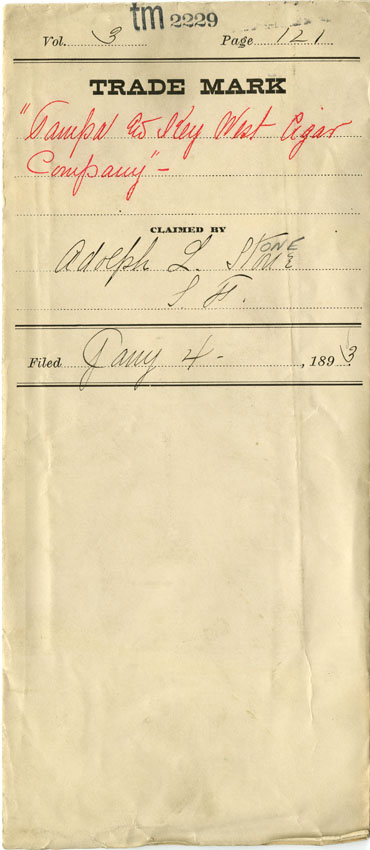 tm 2229
Vol. 3 Page 121
TRADE MARK
"Tampa & Key West Cigar
Company" -
CLAIMED BY
Adolph L. Stone
S. F.
Filed Jany 4 - , 1893